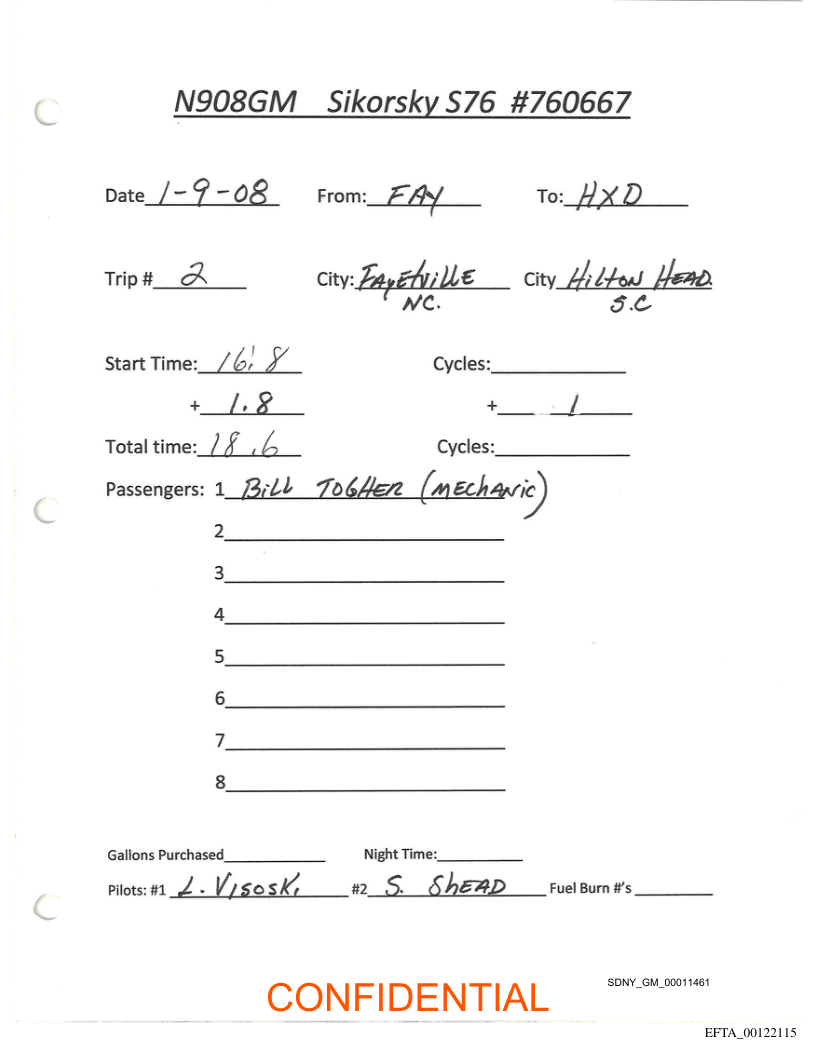 N908GM Sikorsky S76 #760667
Date 1-9-08 From: FAY To: HXD
Trip # 2 City: FAYETVILLE City HILTON HEAD.
NC. S.C
Start Time: 16.8 Cycles:
+ 1.8 + 1
Total time: 18.6 Cycles:
Passengers: 1 BILL TOGHER (MECHANIC)
2
3
4
5
6
7
8
Gallons Purchased Night Time:
Pilots: #1 L. VISOSKI #2 S. SHEAD Fuel Burn #'s
SDNY_GM_00011461
CONFIDENTIAL
EFTA_00122115